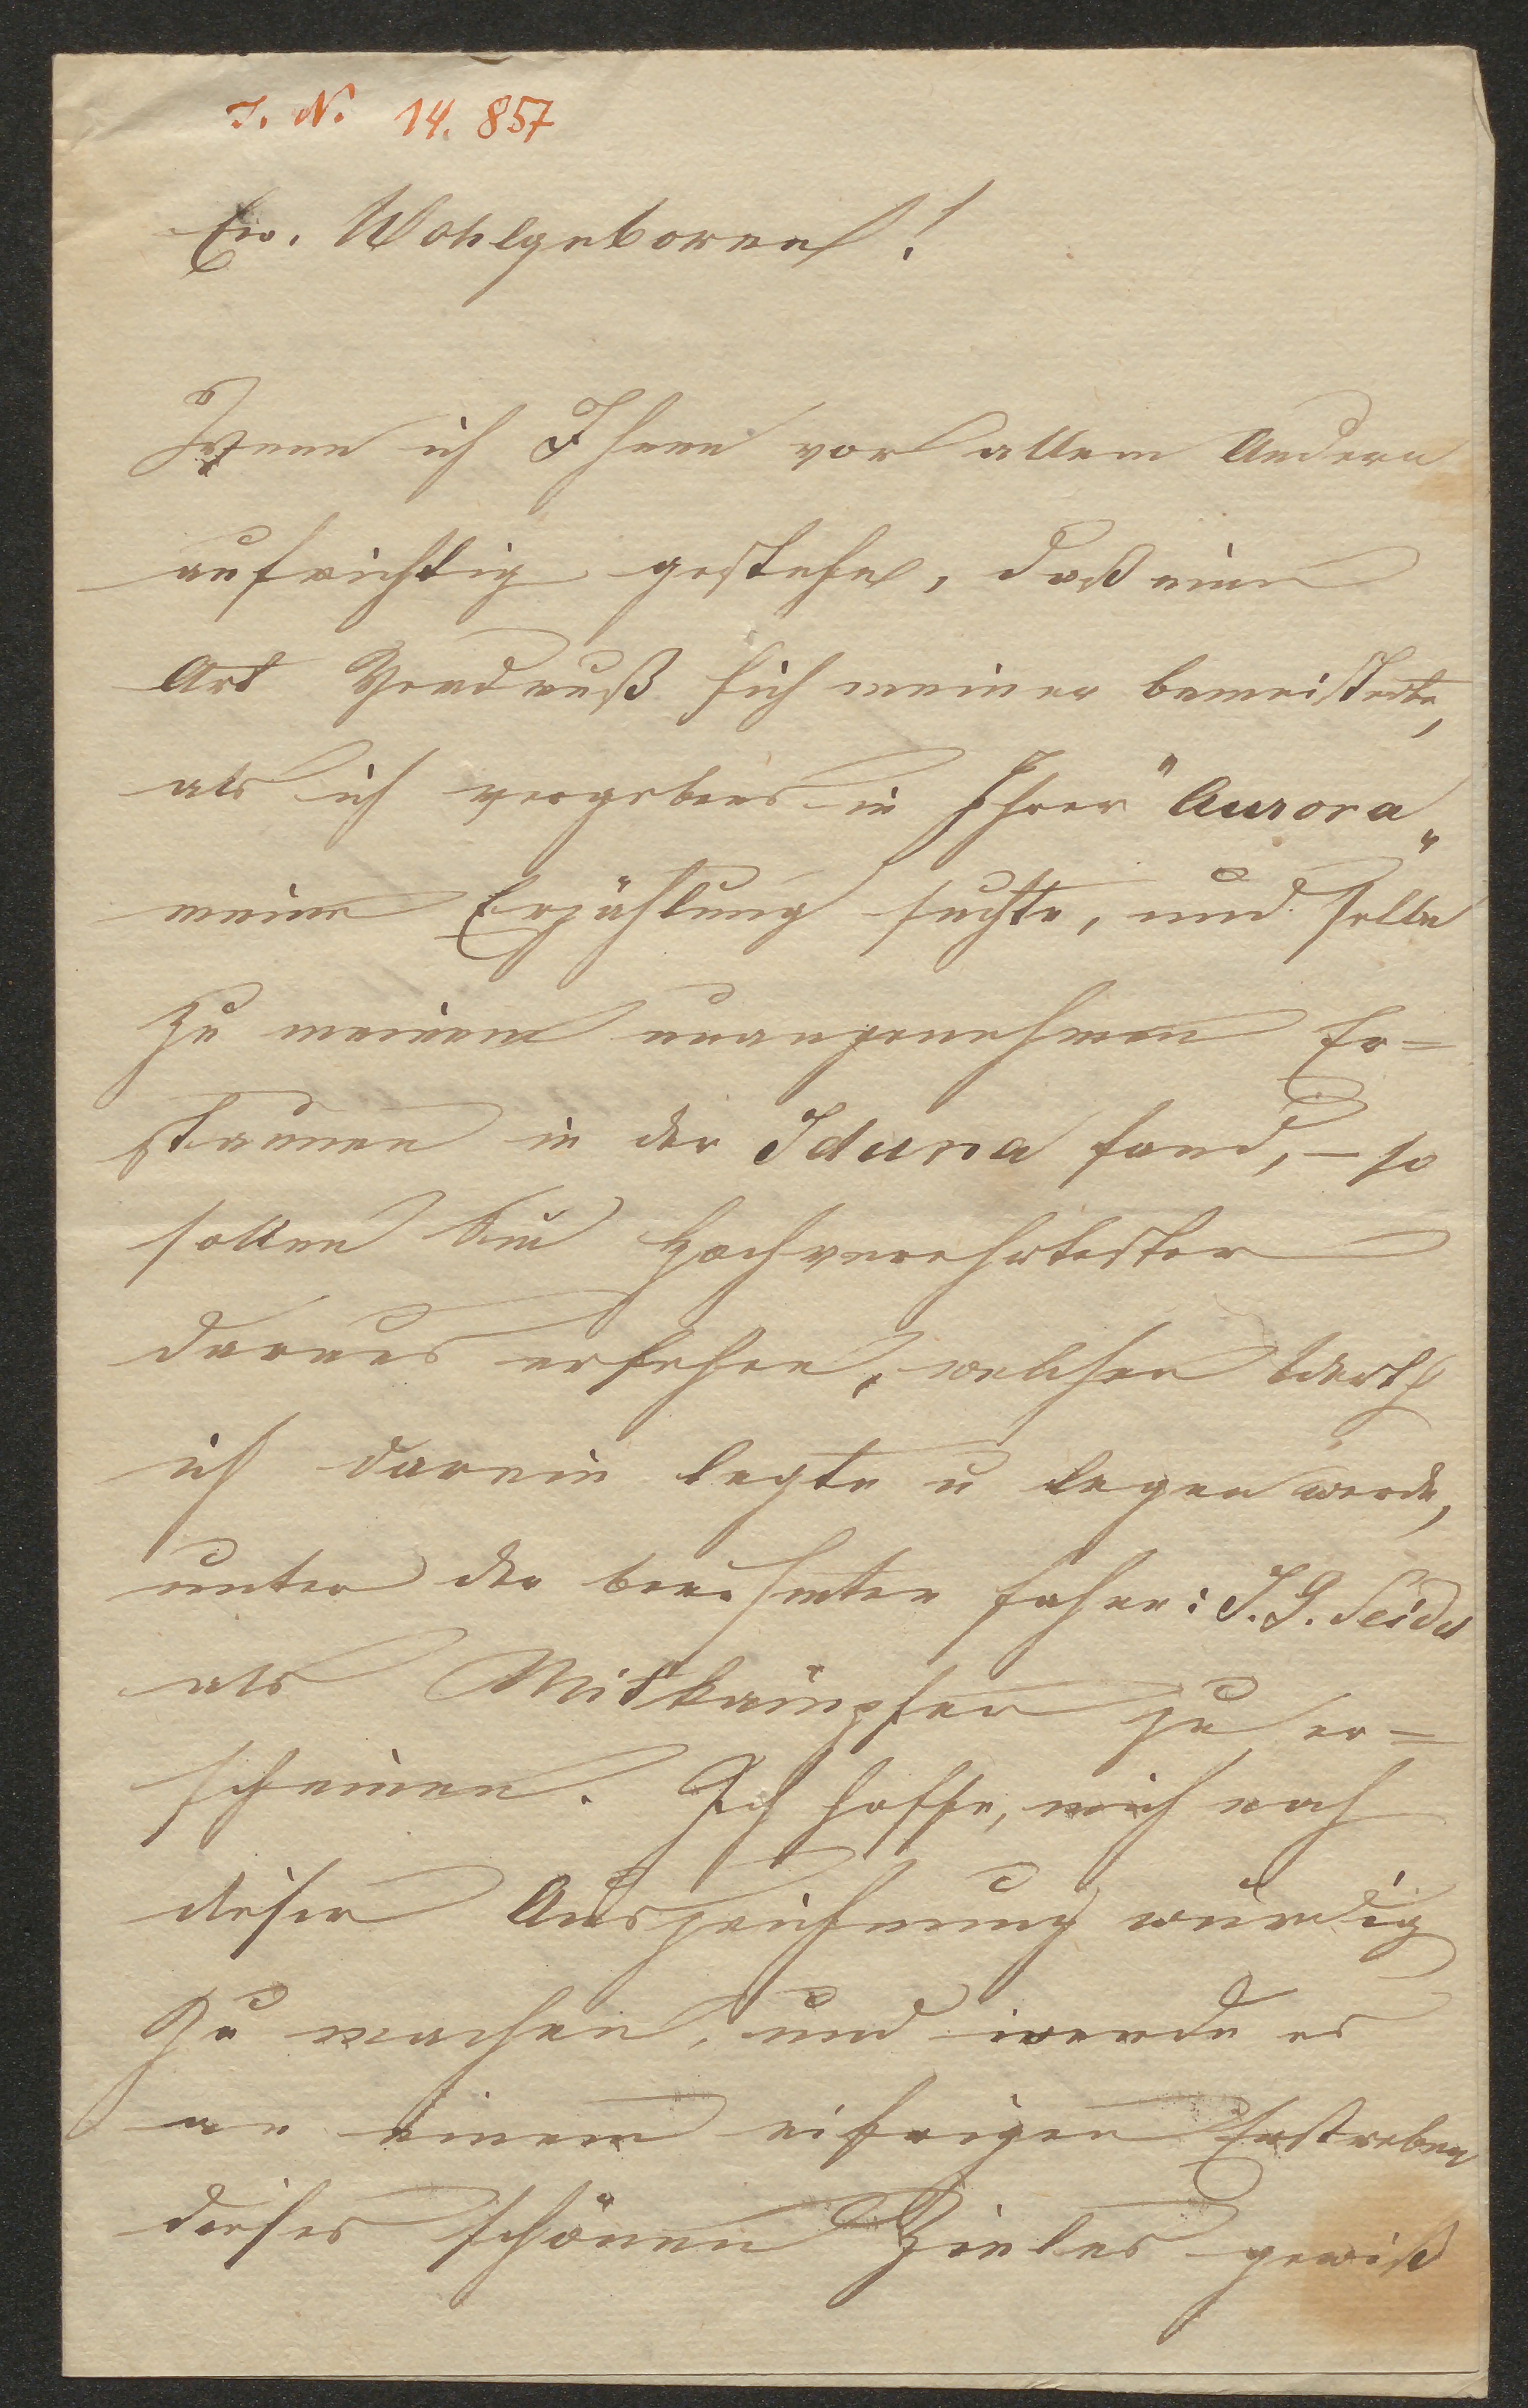 J. N. 14.857
Ew. Wohlgeboren!
Wenn ich Ihnen vor allem Andern
aufrichtig gestehe, daß eine
Art Verdruß sich meiner bemeisterte,
als ich vergebens in Ihrer "Aurora"
meine Erzählung suchte, und selbe
zu meinem unangenehmen Er=
staunen in der Iduna fand, – so
sollen Sie Hochverehrtester
daraus ersehen, welchen Werth
ich darein legte u legen werde,
unter der berühmten Fahne: J. G. Seidl
als Mitkämpfer zu er=
scheinen. Ich hoffe, mich noch
dieser Auszeichnung würdig
zu machen, und werde es
an einem eifrigen Erstreben
dieses schönen Zieles gewiß